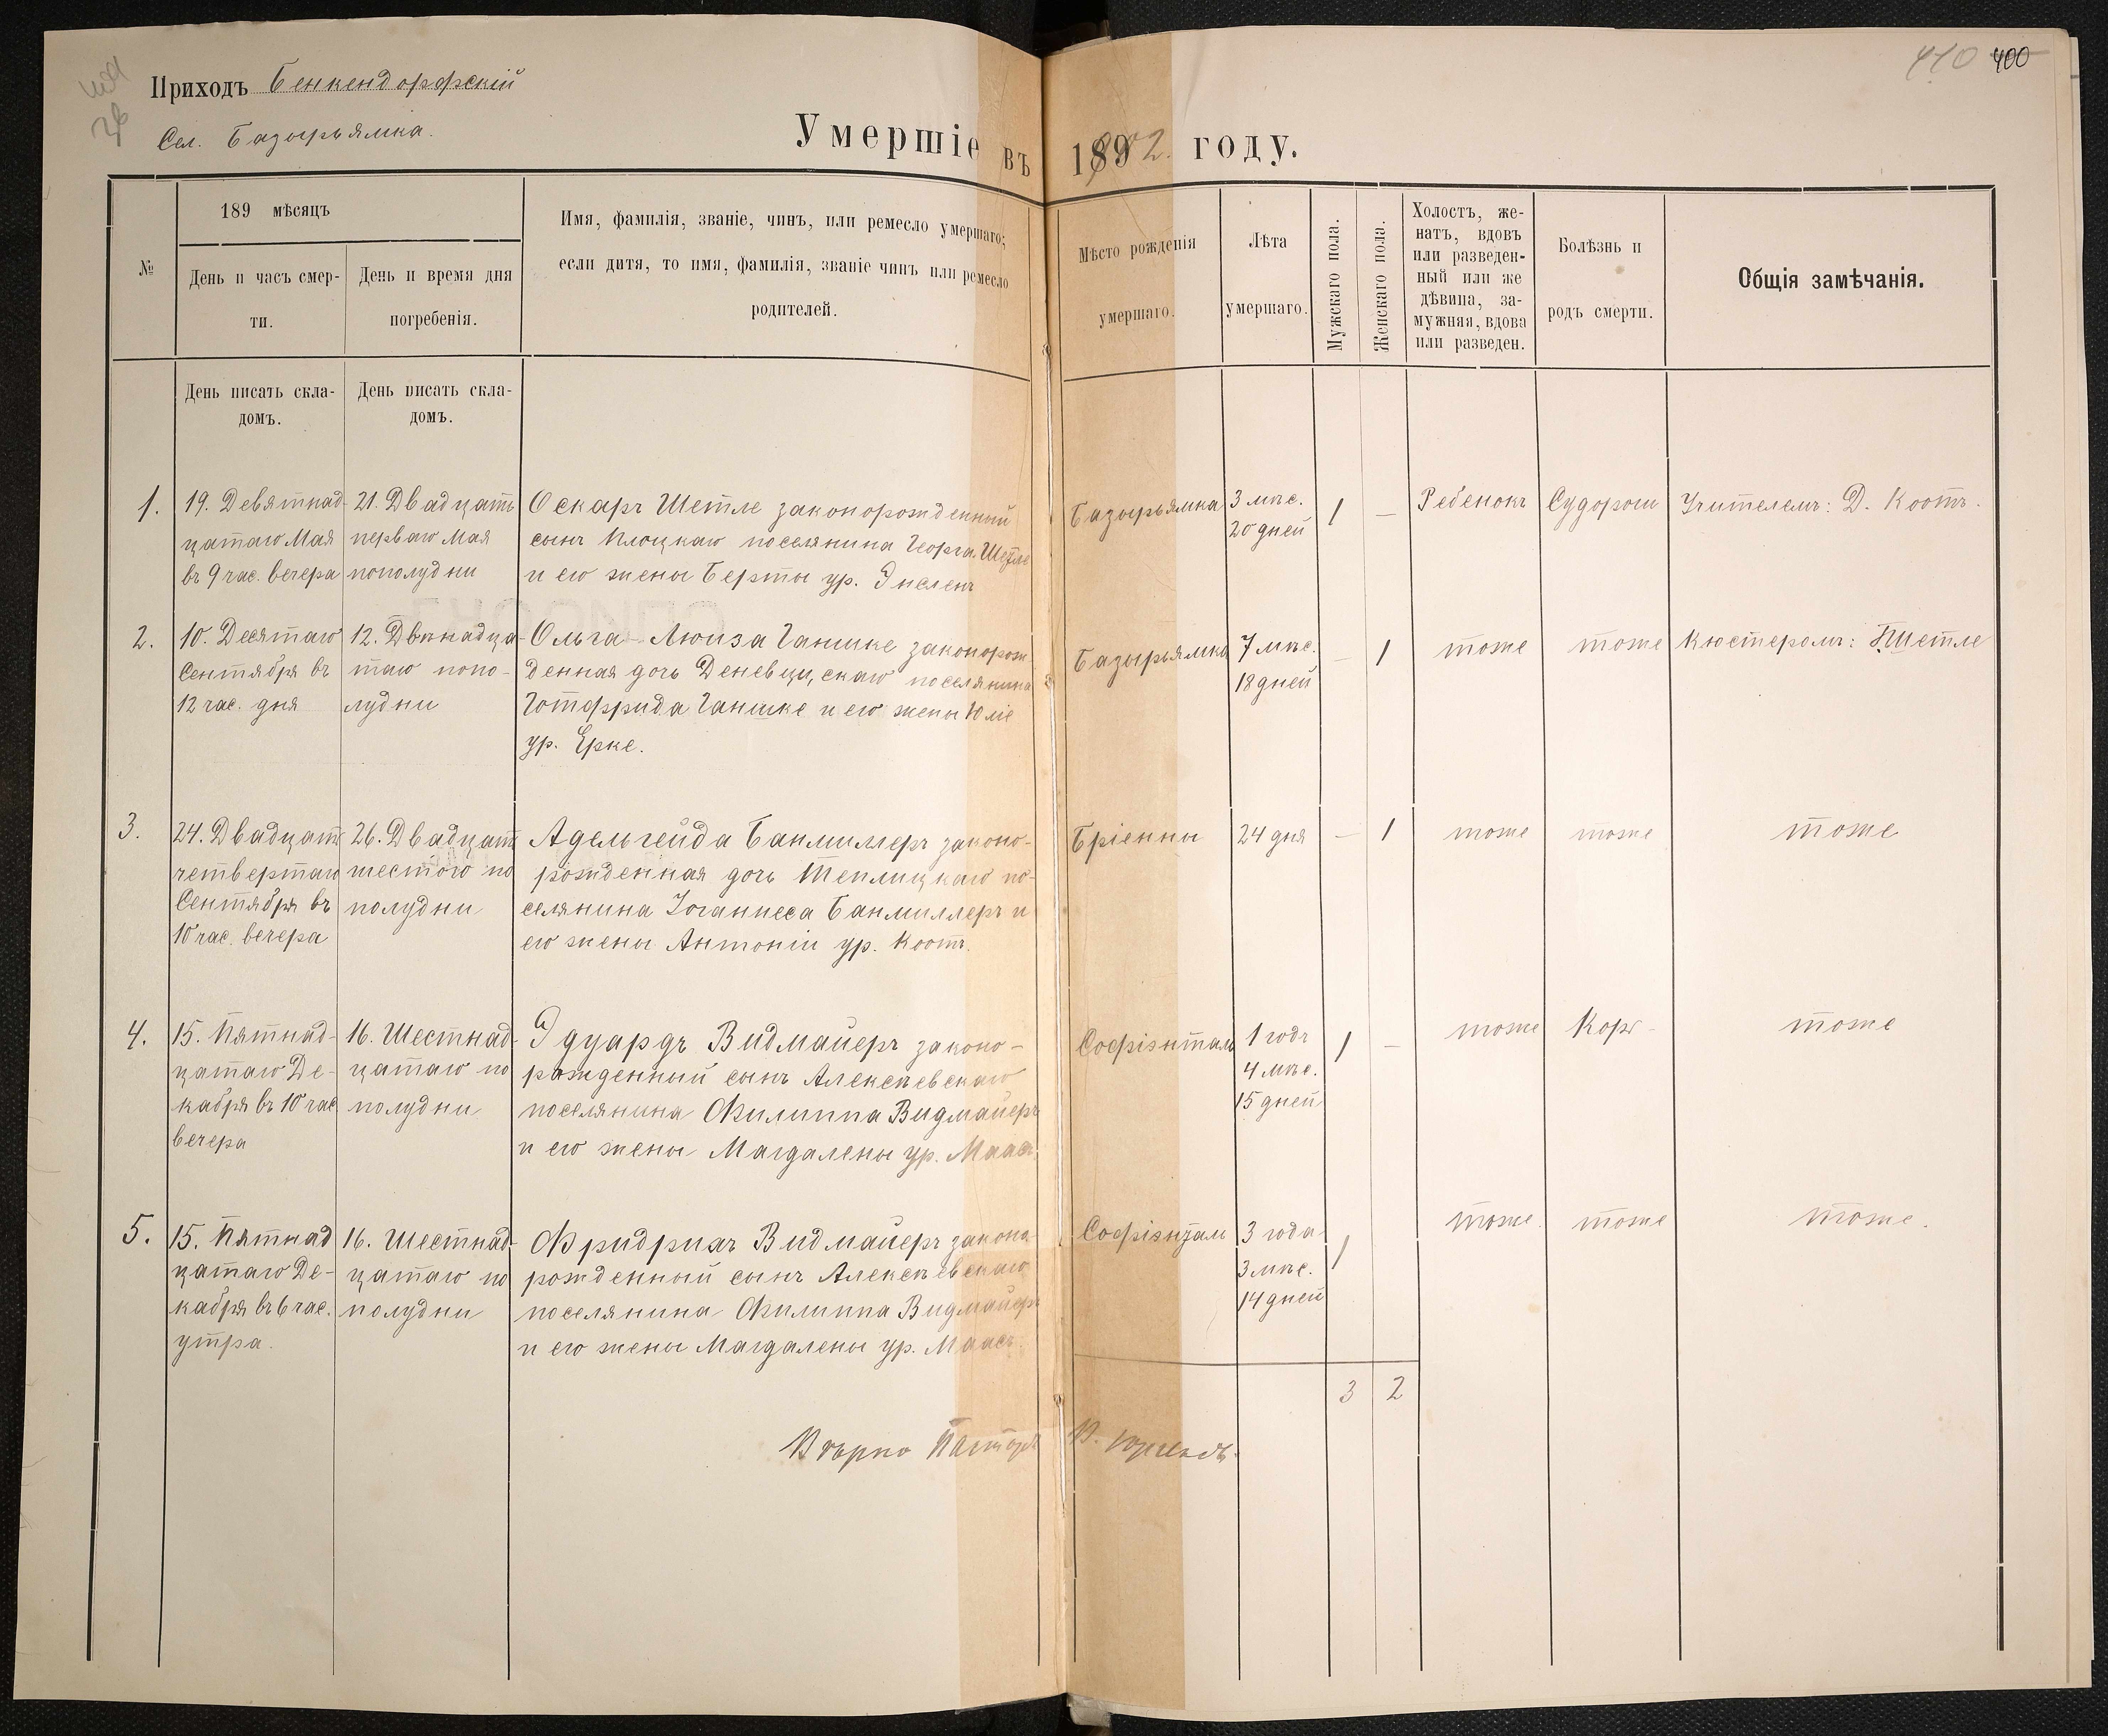 410 400
Приходъ Бенкендорфскій
Сел. Базырьямка.
Умершіе въ 1902 году.
№
189 мѣсяцъ
День и часъ смер-
ти.
День и время дня
погребенія.
Имя, фамилія, званіе, чинъ, или ремесло умершаго;
если дитя, то имя, фамилія, званіе чинъ или ремесло
родителей.
Мѣсто рожденія
умершаго.
Лѣта
умершаго.
Мужскаго пола.
Женскаго пола.
Холостъ, же-
натъ, вдовъ
или разведен-
ный или же
дѣвица, за-
мужняя, вдова
или разведен.
Болѣзнь и
родъ смерти.
Общія замѣчанія.
День писать скла-
домъ.
День писать скла-
домъ.
1.
19. Девятнад-
цатаго Мая
въ 9 час. вечера
21. Двадцать
перваго Мая
пополудни
Оскаръ Шетле законорожденный
сынъ Плоцкаго поселянина Георга Шетле
и его жены Берты ур. Энсленъ
Базырьямка
3 мѣс.
20 дней
1
—
Ребенокъ
Судороги
Учителемъ: Д. Коотъ.
2.
10. Десятаго
Сентября въ
12 час. дня
12. Двѣнадца-
таго попо-
лудни
Ольга-Люиза Ганшке законорож-
денная дочь Деневицскаго поселянина
Готфрида Ганшке и его жены Юліе
ур. Ерке.
Базырьямка
7 мѣс.
18 дней
—
1
тоже
тоже
Кюстеромъ: Г. Шетле
3.
24. Двадцать
четвертаго
Сентября въ
10 час. вечера
26. Двадцать
шестого по
полудни
Адельгейда Банмиллеръ законо-
рожденная дочь Теплицкаго по-
селянина Іоганнеса Банмиллеръ и
его жены Антоніи ур. Коотъ.
Бріенны
24 дня
—
1
тоже
тоже
тоже
4.
15. Пятнад-
цатаго Де-
кабря въ 10 час
вечера
16. Шестнад-
цатаго по
полудни
Эдуардъ Видмайеръ законо-
рожденный сынъ Алексѣевскаго
поселянина Филиппа Видмайеръ
и его жены Магдалены ур. Маасъ.
Софіэнталь
1 годъ
4 мѣс.
15 дней
1
—
тоже
Корь
тоже
5.
15. Пятнад
цатаго Де-
кабря въ 6 час.
утра.
16. Шестнад-
цатаго по
полудни
Фридрихъ Видмайеръ законо
рожденный сынъ Алексѣевскаго
поселянина Филиппа Видмайеръ
и его жены Магдалены ур. Маасъ.
Софіэнталь
3 года
3 мѣс.
14 дней
1
тоже.
тоже
тоже.
3 2
Вѣрно Пасторъ